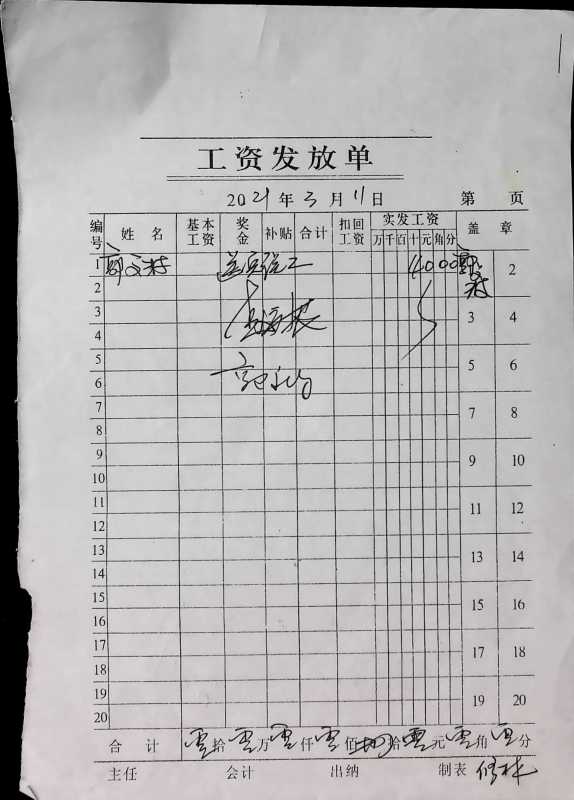 工资发放单
2021年3月11日 第 页
编号 姓名 基本工资 奖金 补贴 合计 扣回工资 实发工资 万 千 百 十 元 角 分 盖章
1 郭文林 4000 2
2
3 3 4
4
5 5 6
6
7 7 8
8
9 9 10
10
11 11 12
12
13 13 14
14
15 15 16
16
17 17 18
18
19 19 20
20
合计 零拾零万零仟零佰肆拾零元零角零分
主任 会计 出纳 制表